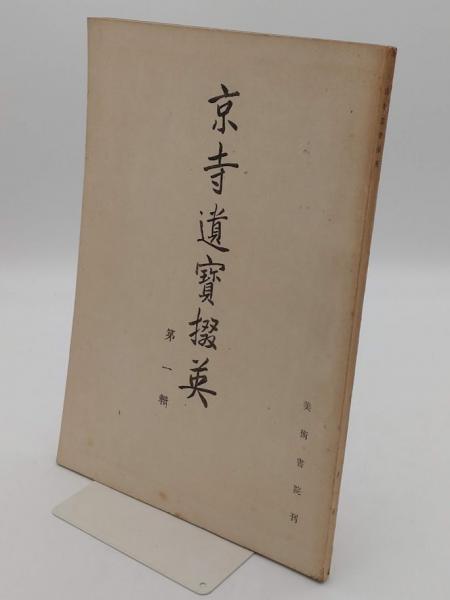 京寺遺寶掇英
第一輯
美術書院刊